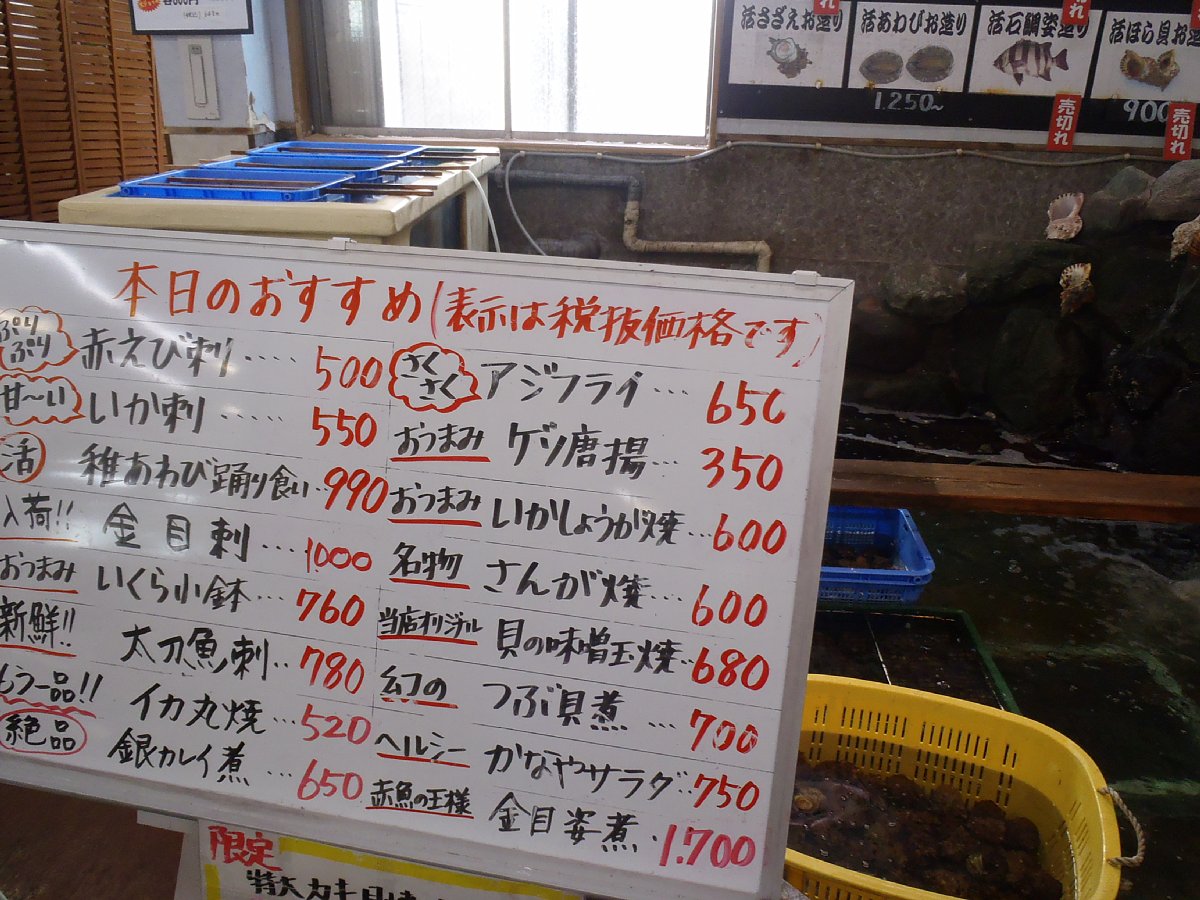 活さざえお造り
活あわびお造り
1.250~
活石鯛姿造り
売切れ
活ほら貝お造
900
売切れ
本日のおすすめ(表示は税抜価格です)
ぷりぷり 赤えび刺····· 500
甘〜い いか刺 ······ 550
活 稚あわび踊り食い·· 990
入荷!! 金目刺 ···· 1000
おつまみ いくら小鉢··· 760
新鮮!! 太刀魚刺·· 780
もう一品!! イカ丸焼 ··· 520
絶品 銀カレイ煮 ··· 650
さくさく アジフライ ··· 650
おつまみ ゲソ唐揚··· 350
おつまみ いかしょうが焼··· 600
名物 さんが焼··· 600
当店オリジナル 貝の味噌玉焼·· 680
幻の つぶ貝煮 ··· 700
ヘルシー かなやサラダ·· 750
赤魚の王様 金目姿煮 · 1.700
限定